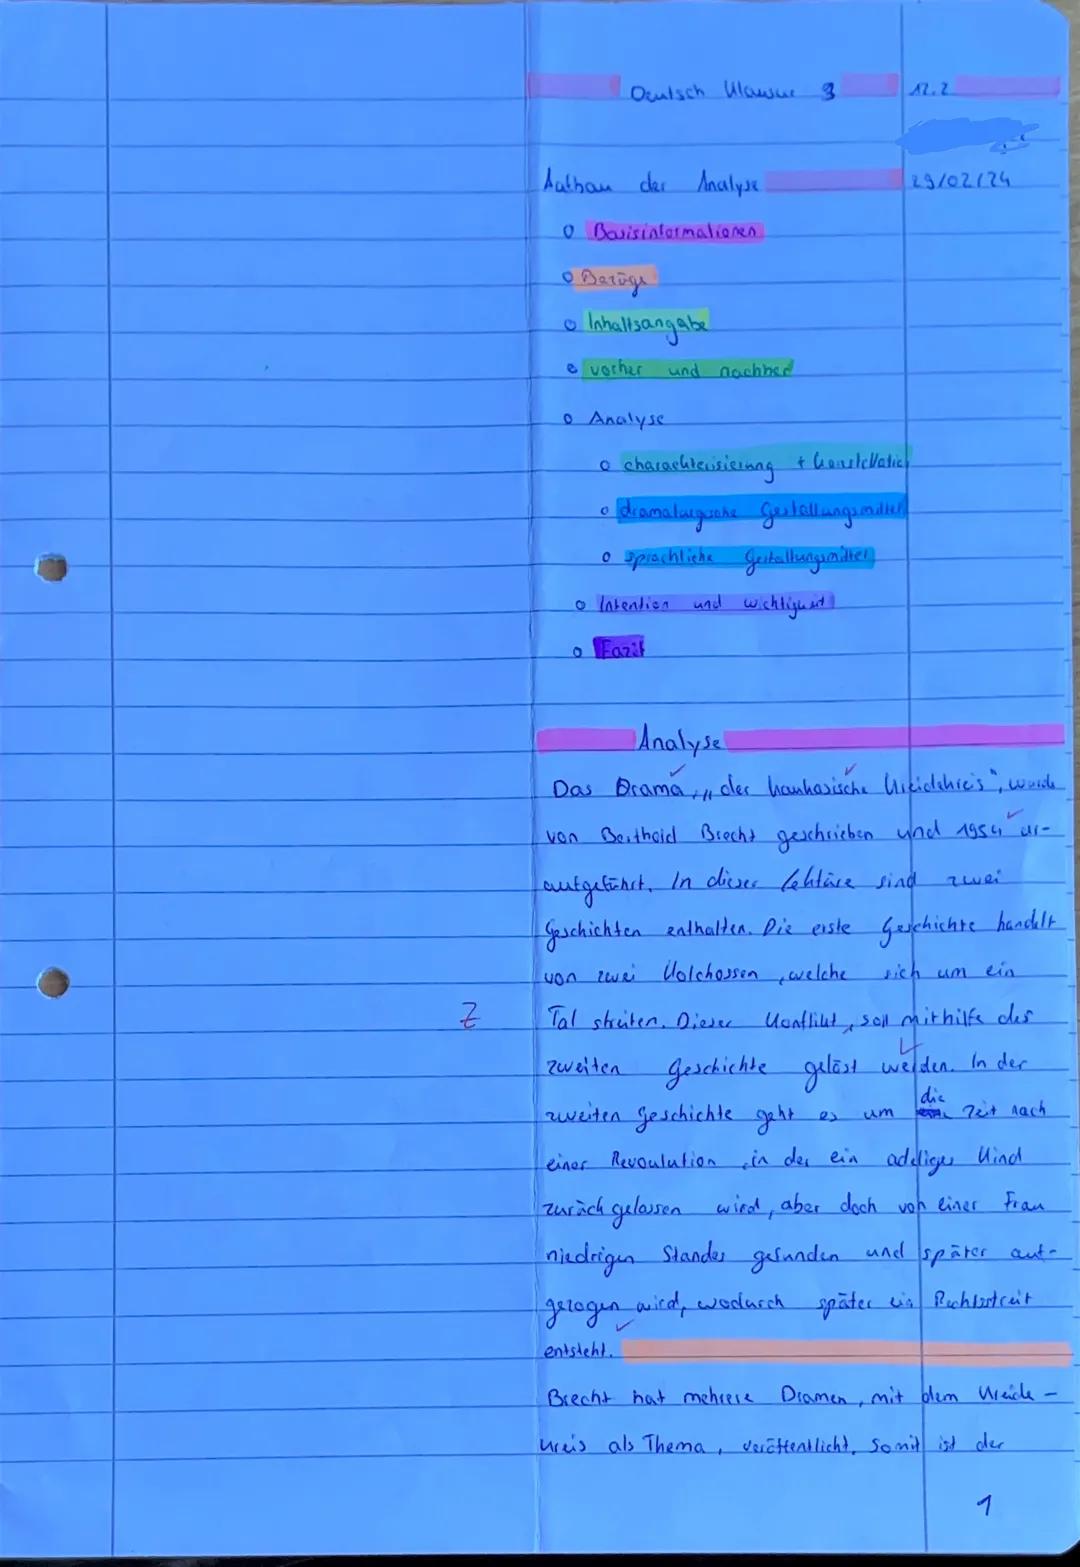 Deutsch Klausur 3 12.2
Aufbau der Analyse 29/02/24
Basisinformationen
Bezüge
Inhaltsangabe
vorher und nachher
Analyse
charachterisierung + Konstellation
dramaturgische Gestaltungsmittel
sprachliche Gestaltungsmittel
Intention und wichtigkeit
Fazit
Analyse
Das Drama, „der kaukasische Kreidekreis", wurde
von Berthold Brecht geschrieben und 1954 ur-
aufgeführt. In dieser Lektüre sind zwei
Geschichten enthalten. Die erste Geschichte handelt
von zwei Kolchosen, welche sich um ein
Z Tal streiten. Dieser Konflikt, soll mithilfe der
zweiten Geschichte gelöst werden. In der
zweiten Geschichte geht es um die Zeit nach
einer Revoulution, in der ein adeliges Kind
zurück gelassen wird, aber doch von einer Frau
niedrigen Standes gefunden und später auf-
gezogen wird, wodurch später ein Rechtsstreit
entsteht.
Brecht hat mehrere Dramen, mit dem Kreide-
kreis als Thema, veröffentlicht. Somit ist der
1